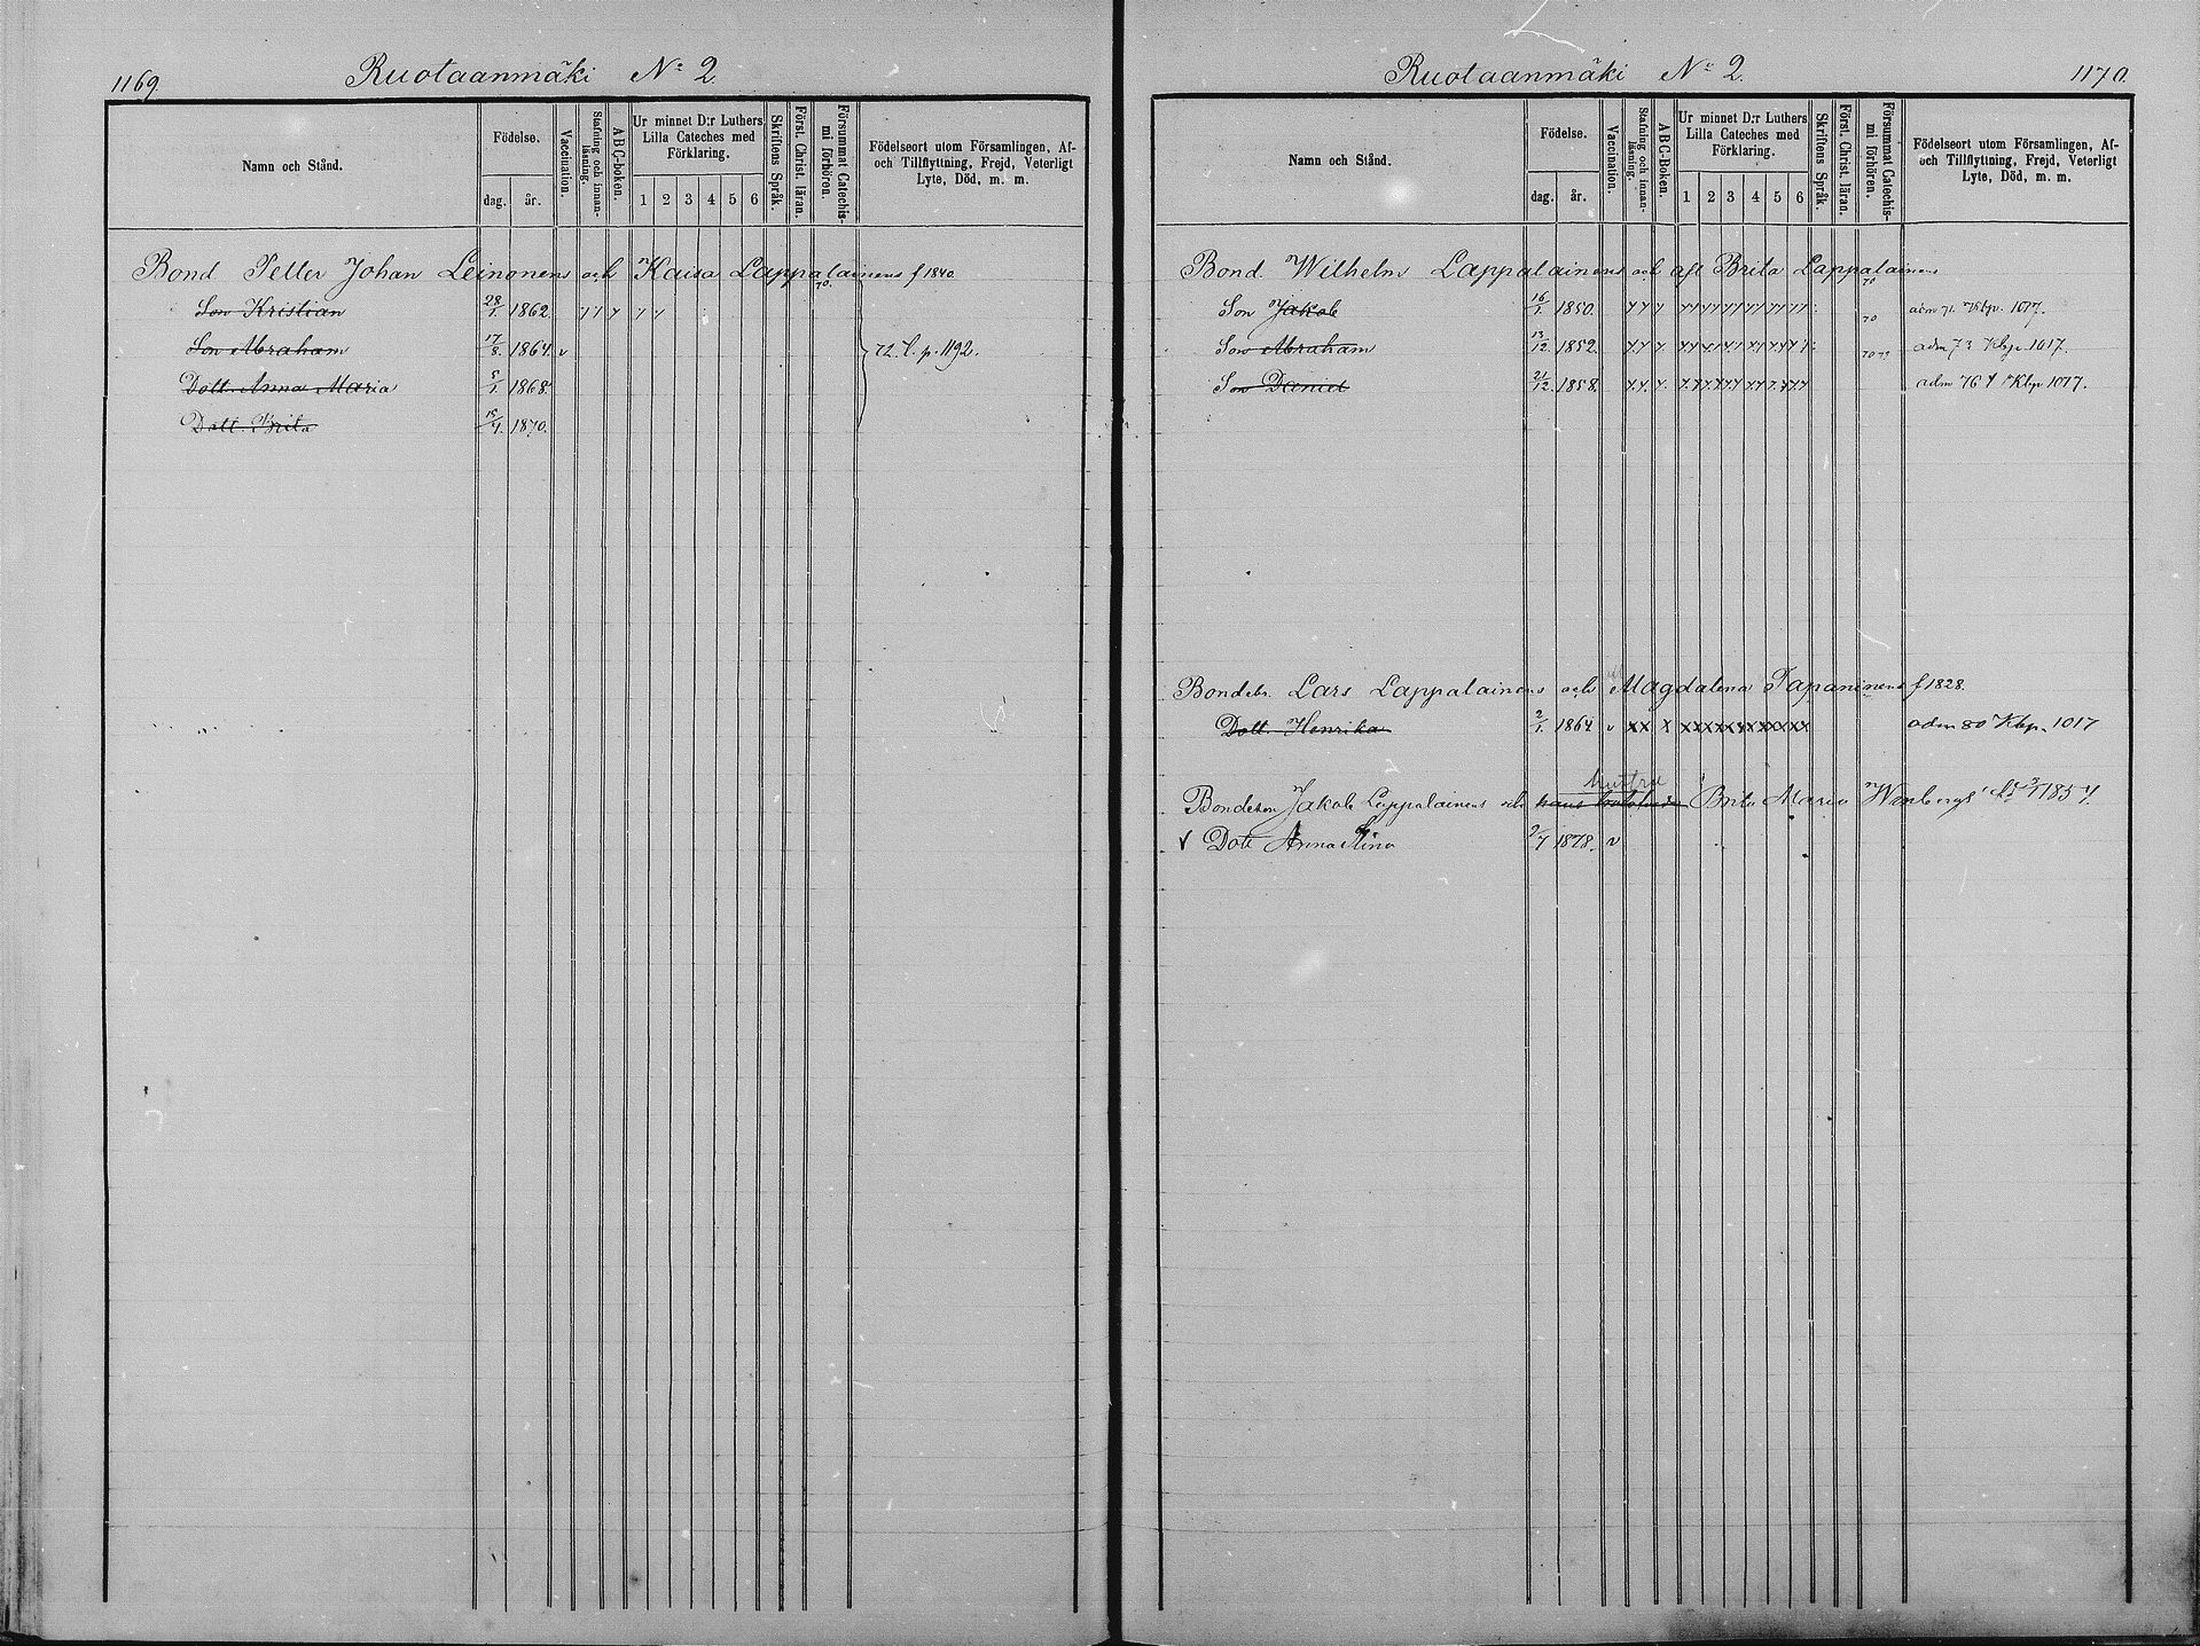 1169.
Ruotaanmäki No 2.
Namn och Stånd.
Födelse.
dag.
år.
Vaccination.
Stafning och innan-läsning.
A B C-boken.
Ur minnet D:r Luthers
Lilla Cateches med
Förklaring.
1 2 3 4 5 6
Skriftens Språk.
Först. Christ. läran.
Försummat Catechis-
mi förhören.
Födelseort utom Församlingen, Af-
och Tillflyttning, Frejd, Veterligt
Lyte, Död, m. m.
Bond Petter Johan Leinonens och Kaisa Lappalainens f 1840.
Son Kristian 28/1. 1862. 70.
Son Abraham 17/8. 1864. v 72. l. p. 1192.
Dott. Anna Maria 5/1. 1868.
Dott. Brita 15/4. 1870.
Ruotaanmäki No 2.
1170.
Namn och Stånd.
Födelse.
dag.
år.
Vaccination.
Stafning och innan-läsning.
A B C-boken.
Ur minnet D:r Luthers
Lilla Cateches med
Förklaring.
1 2 3 4 5 6
Skriftens Språk.
Först. Christ. läran.
Försummat Catechis-
mi förhören.
Födelseort utom Församlingen, Af-
och Tillflyttning, Frejd, Veterligt
Lyte, Död, m. m.
Bond. Wilhelm Lappalainens och afl Brita Lappalainens
Son Jakob 16/1. 1850. 70 adm 71. Kbp. 1017.
Son Abraham 13/12. 1852. 70 adm 73 Kbp. 1017.
Son Daniel 21/12. 1858. 70 adm 76 Kbp 1017.
Bondebr. Lars Lappalainens och Magdalena Tapaninens f 1828.
Dott. Henrika 2/1. 1864 v XX X XXXXXXXXXXX adm 80 Kbp. 1017
hustru
Bondeson Jakob Lappalainens och hans Brita Maria Wenbergs 1857.
V Dott Anna Stina 2/7 1878. v